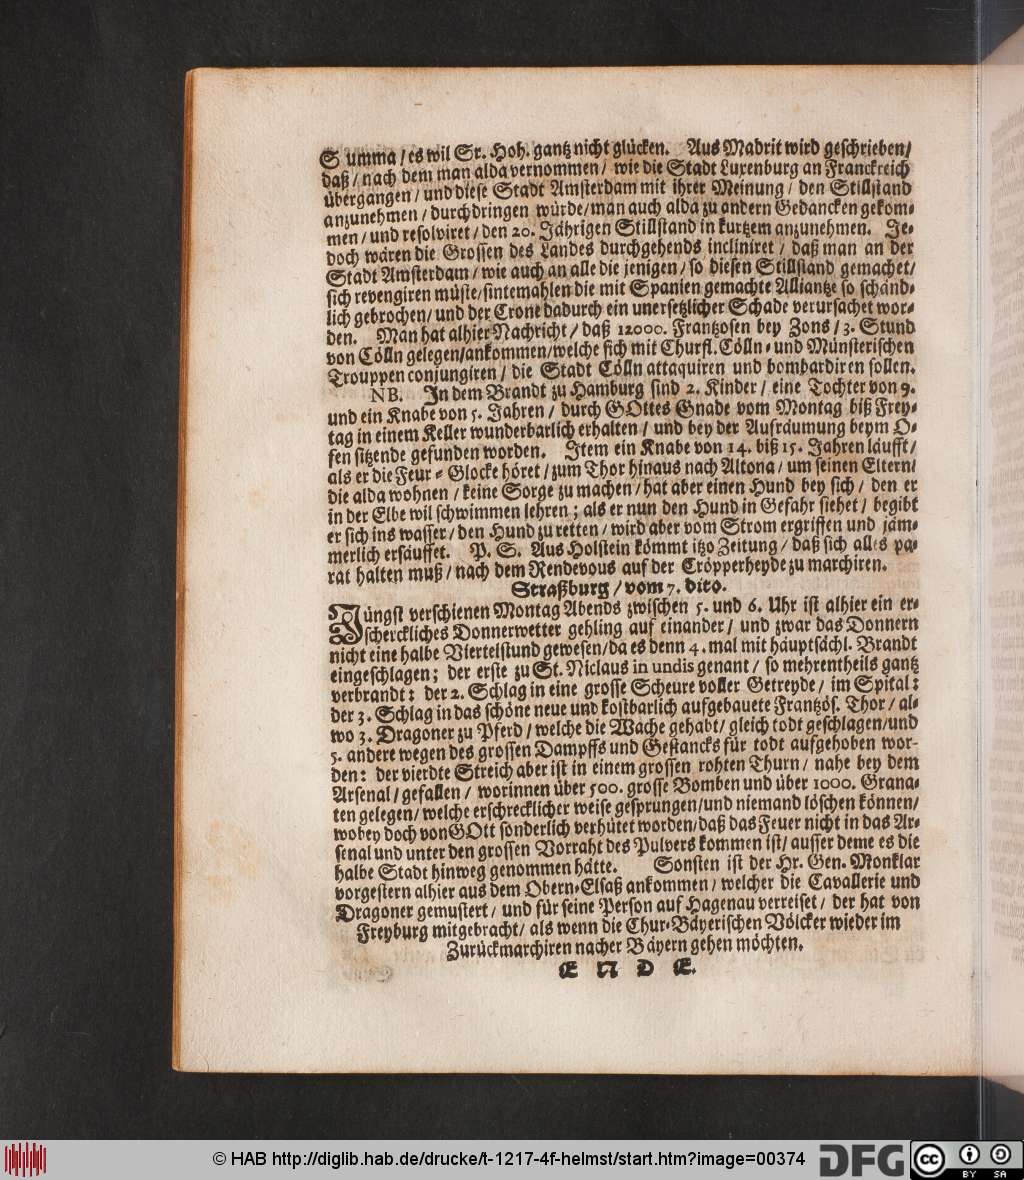 Summa / es wil Sr. Hoh. gantz nicht glücken. Aus Madrit wird geschrieben /
daß / nach dem man alda vernommen / wie die Stadt Luxenburg an Franckreich
übergangen / und diese Stadt Amsterdam mit ihrer Meinung / den Stillstand
anzunehmen / durchdringen würde / man auch alda zu andern Gedancken gekom-
men / und resolviret / den 20. Jährigen Stillstand in kurtzem anzunehmen. Je-
doch wären die Grossen des Landes durchgehends incliniret / daß man an der
Stadt Amsterdam / wie auch an alle die jenigen / so diesen Stillstand gemachet /
sich revengiren müste / sintemahlen die mit Spanien gemachte Alliantze so schänd-
lich gebrochen / und der Crone dadurch ein unersetzlicher Schade verursachet wor-
den. Man hat alhier Nachricht / daß 12000. Frantzosen bey Zons / 3. Stund
von Cölln gelegen / ankommen / welche sich mit Churfl. Cölln- und Münsterischen
Trouppen conjungiren / die Stadt Cölln attaquiren und bombardiren sollen.
NB. In dem Brandt zu Hamburg sind 2. Kinder / eine Tochter von 9.
und ein Knabe von 5. Jahren / durch GOttes Gnade vom Montag biß Frey-
tag in einem Keller wunderbarlich erhalten / und bey der Aufräumung beym O-
fen sitzende gefunden worden. Item ein Knabe von 14. biß 15. Jahren läufft /
als er die Feur-Glocke höret / zum Thor hinaus nach Altona / um seinen Eltern /
die alda wohnen / keine Sorge zu machen / hat aber einen Hund bey sich / den er
in der Elbe wil schwimmen lehren; als er nun den Hund in Gefahr siehet / begibt
er sich ins wasser / den Hund zu retten / wird aber vom Strom ergriffen und jäm-
merlich ersäuffet. P. S. Aus Holstein kömmt itzo Zeitung / daß sich alles pa-
rat halten muß / nach dem Rendevous auf der Cröpperheyde zu marchiren.
Straßburg / vom 7. dito.
Jüngst verschienen Montag Abends zwischen 5. und 6. Uhr ist alhier ein er-
scherckliches Donnerwetter gehling auf einander / und zwar das Donnern
nicht eine halbe Viertelstund gewesen / da es denn 4. mal mit häuptsächl. Brandt
eingeschlagen; der erste zu St. Niclaus in undis genant / so mehrentheils gantz
verbrandt: der 2. Schlag in eine grosse Scheure voller Getreyde / im Spital:
der 3. Schlag in das schöne neue und kostbarlich aufgebauete Frantzös. Thor / al-
wo 3. Dragoner zu Pferd / welche die Wache gehabt / gleich todt geschlagen / und
5. andere wegen des grossen Dampffs und Gestancks für todt aufgehoben wor-
den: der vierdte Streich aber ist in einem grossen rohten Thurn / nahe bey dem
Arsenal / gefallen / worinnen über 500. grosse Bomben und über 1000. Grana-
ten gelegen / welche erschrecklicher weise gesprungen / und niemand löschen können /
wobey doch von GOtt sonderlich verhütet worden / daß das Feuer nicht in das Ar-
senal und unter den grossen Vorraht des Pulvers kommen ist / ausser deme es die
halbe Stadt hinweg genommen hätte. Sonsten ist der Hr. Gen. Monklar
vorgestern alhier aus dem Obern-Elsaß ankommen / welcher die Cavallerie und
Dragoner gemustert / und für seine Person auf Hagenau verreiset / der hat von
Freyburg mitgebracht / als wenn die Chur-Bäyerischen Völcker wieder im
Zurückmarchiren nacher Bäyern gehen möchten.
E N D E.
© HAB http://diglib.hab.de/drucke/t-1217-4f-helmst/start.htm?image=00374
DFG
cc BY SA